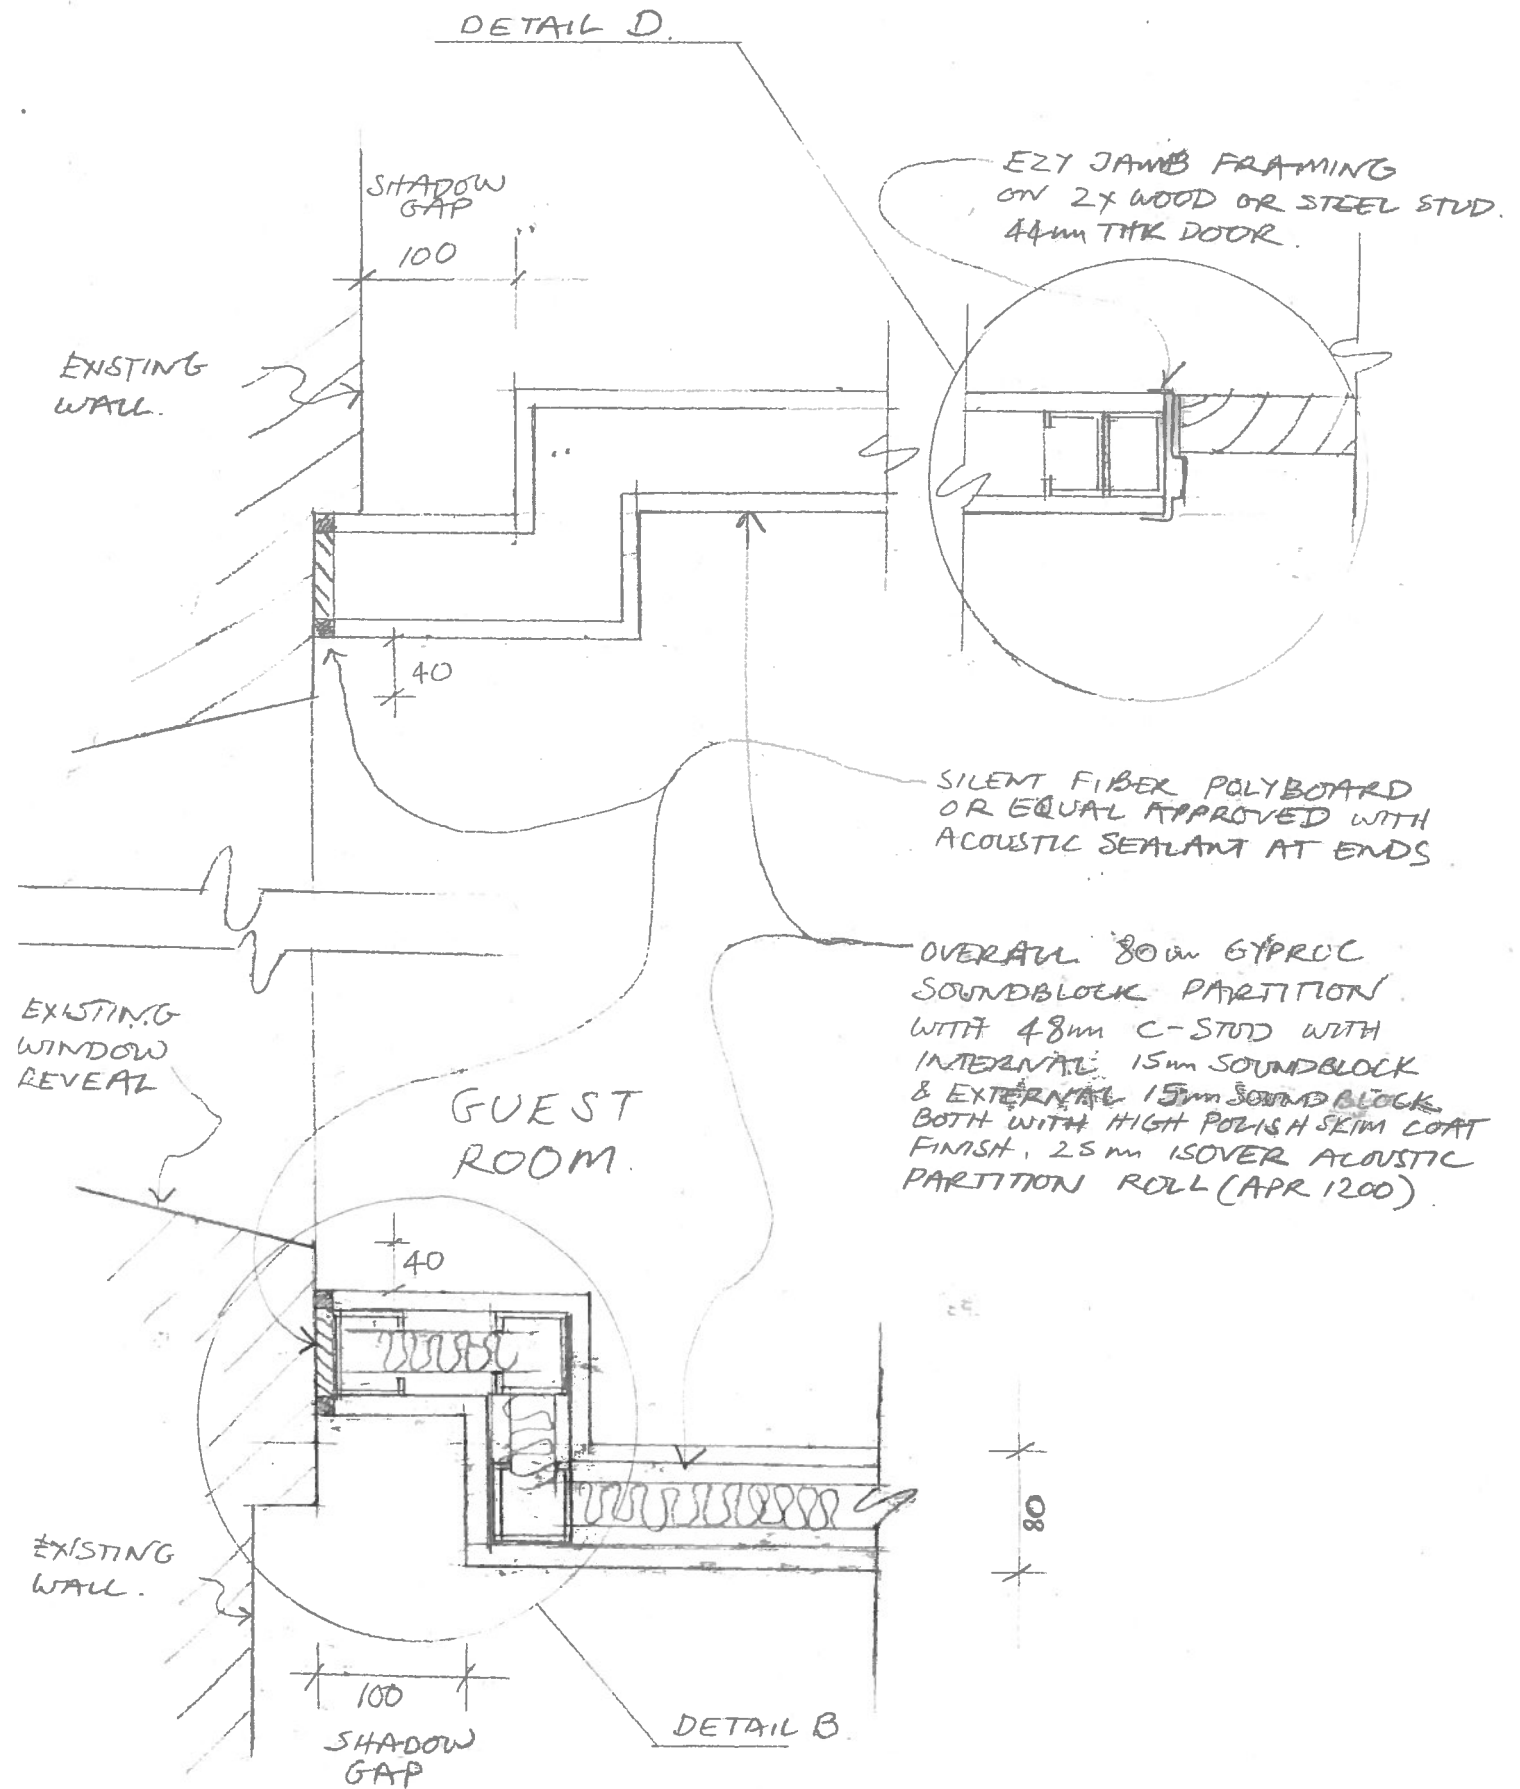 DETAIL D.
EZY JAMB FRAMING
ON 2X WOOD OR STEEL STUD.
44mm THK DOOR.
SHADOW
GAP
100
EXISTING
WALL.
40
SILENT FIBER POLYBOARD
OR EQUAL APPROVED WITH
ACOUSTIC SEALANT AT ENDS
OVERALL 80mm GYPROC
SOUNDBLOCK PARTITION
WITH 48mm C-STUD WITH
INTERNAL 15mm SOUNDBLOCK
& EXTERNAL 15mm SOUNDBLOCK
BOTH WITH HIGH POLISH SKIM COAT
FINISH, 25mm ISOVER ACOUSTIC
PARTITION ROLL (APR 1200)
EXISTING
WINDOW
REVEAL
GUEST
ROOM.
40
80
EXISTING
WALL.
100
SHADOW
GAP
DETAIL B